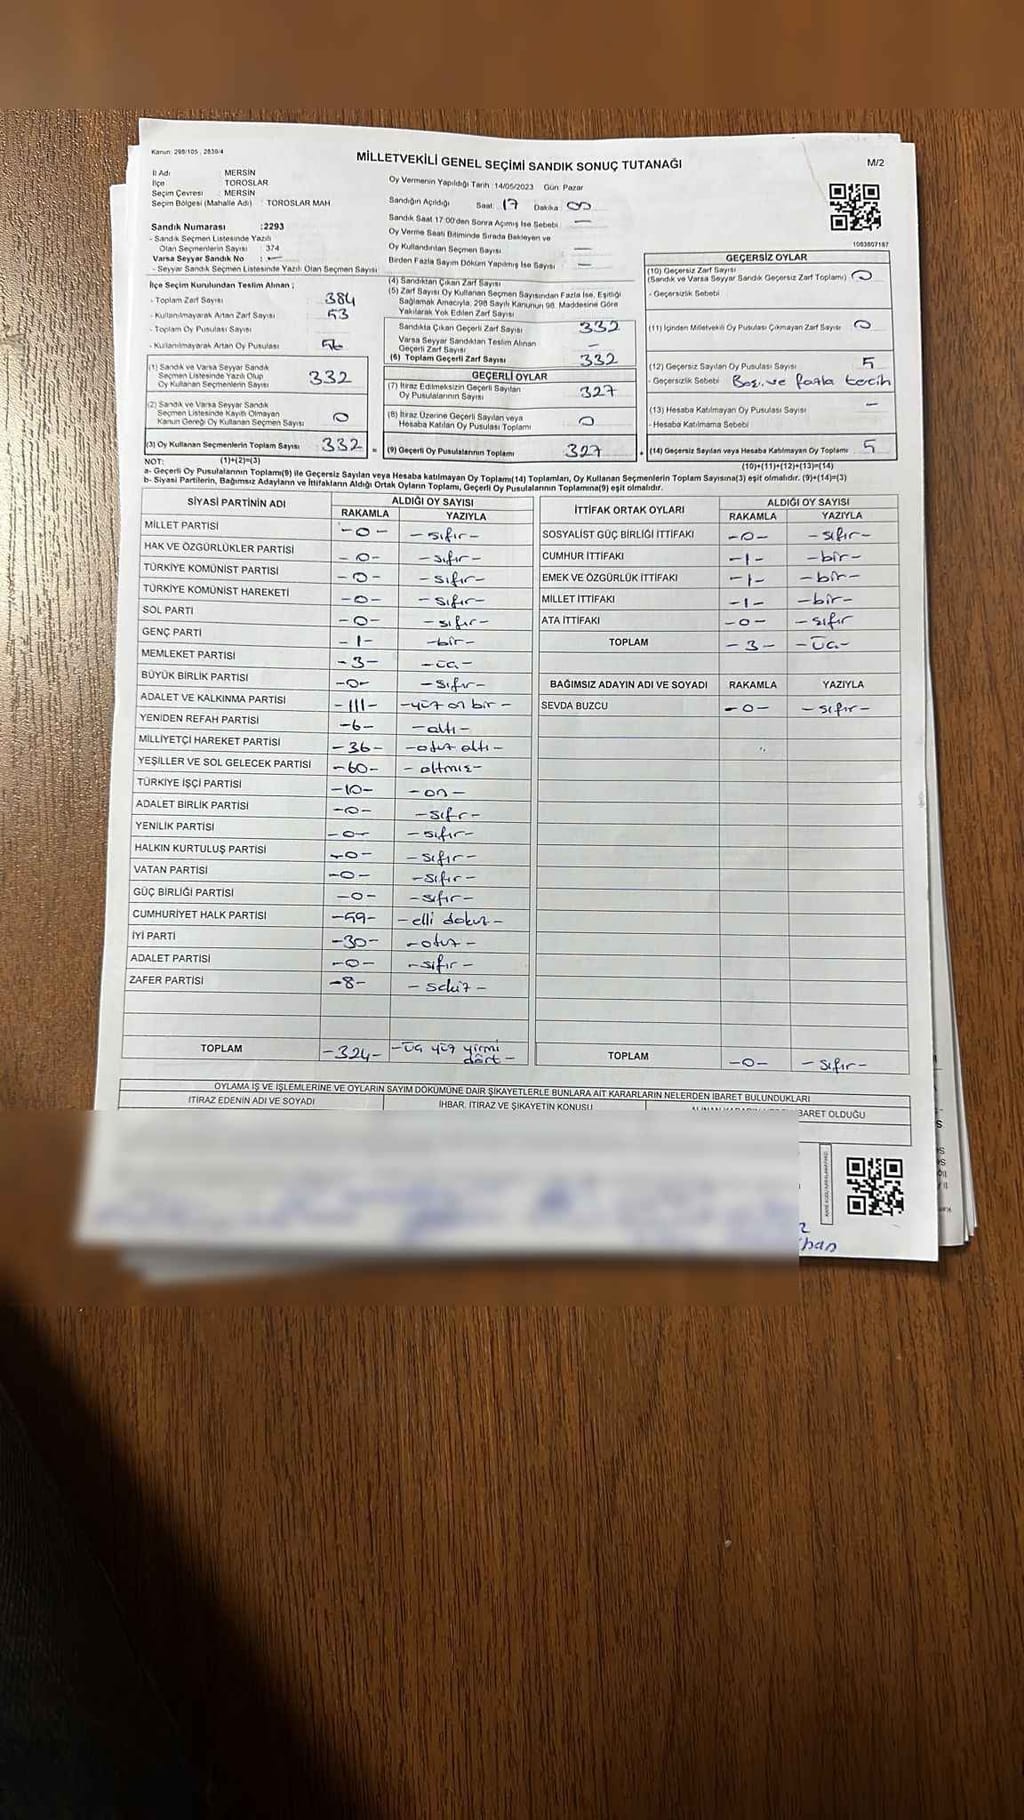 Kanun: 298/105 , 2839/4
MİLLETVEKİLİ GENEL SEÇİMİ SANDIK SONUÇ TUTANAĞI
M/2
İl Adı : MERSİN
İlçe : TOROSLAR
Seçim Çevresi : MERSİN
Seçim Bölgesi (Mahalle Adı) : TOROSLAR MAH
Sandık Numarası :2293
- Sandık Seçmen Listesinde Yazılı
Olan Seçmenlerin Sayısı : 374
Varsa Seyyar Sandık No : —
- Seyyar Sandık Seçmen Listesinde Yazılı Olan Seçmen Sayısı
İlçe Seçim Kurulundan Teslim Alınan ;
- Toplam Zarf Sayısı 384
- Kullanılmayarak Artan Zarf Sayısı 53
- Toplam Oy Pusulası Sayısı
- Kullanılmayarak Artan Oy Pusulası 56
(1) Sandık ve Varsa Seyyar Sandık
Seçmen Listesinde Yazılı Olup
Oy Kullanan Seçmenlerin Sayısı 332
(2) Sandık ve Varsa Seyyar Sandık
Seçmen Listesinde Kayıtlı Olmayan
Kanun Gereği Oy Kullanan Seçmen Sayısı 0
(3) Oy Kullanan Seçmenlerin Toplam Sayısı 332 =
Oy Vermenin Yapıldığı Tarih :14/05/2023 Gün: Pazar
Sandığın Açıldığı Saat: 17 Dakika 00
Sandık Saat 17:00'den Sonra Açımış İse Sebebi —
Oy Verme Saati Bitiminde Sırada Bekleyen ve
Oy Kullandırılan Seçmen Sayısı —
Birden Fazla Sayım Döküm Yapılmış İse Sayısı —
(4) Sandıktan Çıkan Zarf Sayısı
(5) Zarf Sayısı Oy Kullanan Seçmen Sayısından Fazla İse, Eşitliği
Sağlamak Amacıyla, 298 Sayılı Kanunun 98. Maddesine Göre
Yakılarak Yok Edilen Zarf Sayısı —
Sandıkta Çıkan Geçerli Zarf Sayısı 332
Varsa Seyyar Sandıktan Teslim Alınan
Geçerli Zarf Sayısı –
(6) Toplam Geçerli Zarf Sayısı 332
GEÇERLİ OYLAR
(7) İtiraz Edilmeksizin Geçerli Sayılan
Oy Pusulalarının Sayısı 327
(8) İtiraz Üzerine Geçerli Sayılan veya
Hesaba Katılan Oy Pusulası Toplamı 0
(9) Geçerli Oy Pusulalarının Toplamı 327 +
1083807187
GEÇERSİZ OYLAR
(10) Geçersiz Zarf Sayısı
(Sandık ve Varsa Seyyar Sandık Geçersiz Zarf Toplamı) 0
- Geçersizlik Sebebi
(11) İçinden Milletvekili Oy Pusulası Çıkmayan Zarf Sayısı 0
(12) Geçersiz Sayılan Oy Pusulası Sayısı 5
- Geçersizlik Sebebi Boş ve fazla tercih
(13) Hesaba Katılmayan Oy Pusulası Sayısı –
- Hesaba Katılmama Sebebi
(14) Geçersiz Sayılan veya Hesaba Katılmayan Oy Toplamı 5
NOT: (1)+(2)=(3) (10)+(11)+(12)+(13)=(14)
a- Geçerli Oy Pusulalarının Toplamı(9) ile Geçersiz Sayılan veya Hesaba katılmayan Oy Toplamı(14) Toplamları, Oy Kullanan Seçmenlerin Toplam Sayısına(3) eşit olmalıdır. (9)+(14)=(3)
b- Siyasi Partilerin, Bağımsız Adayların ve İttifakların Aldığı Ortak Oyların Toplamı, Geçerli Oy Pusulalarının Toplamına(9) eşit olmalıdır.
SİYASİ PARTİNİN ADI ALDIĞI OY SAYISI
RAKAMLA YAZIYLA
MİLLET PARTİSİ -0- -sıfır-
HAK VE ÖZGÜRLÜKLER PARTİSİ -0- -sıfır-
TÜRKİYE KOMÜNİST PARTİSİ -0- -sıfır-
TÜRKİYE KOMÜNİST HAREKETİ -0- -sıfır-
SOL PARTİ -0- -sıfır-
GENÇ PARTİ -1- -bir-
MEMLEKET PARTİSİ -3- -üç-
BÜYÜK BİRLİK PARTİSİ -0- -sıfır-
ADALET VE KALKINMA PARTİSİ -111- -yüz on bir-
YENİDEN REFAH PARTİSİ -6- -altı-
MİLLİYETÇİ HAREKET PARTİSİ -36- -otuz altı-
YEŞİLLER VE SOL GELECEK PARTİSİ -60- -altmış-
TÜRKİYE İŞÇİ PARTİSİ -10- -on-
ADALET BİRLİK PARTİSİ -0- -sıfır-
YENİLİK PARTİSİ -0- -sıfır-
HALKIN KURTULUŞ PARTİSİ -0- -sıfır-
VATAN PARTİSİ -0- -sıfır-
GÜÇ BİRLİĞİ PARTİSİ -0- -sıfır-
CUMHURİYET HALK PARTİSİ -59- -elli dokuz-
İYİ PARTİ -30- -otuz-
ADALET PARTİSİ -0- -sıfır-
ZAFER PARTİSİ -8- -sekiz-
TOPLAM -324- -üç yüz yirmi
dört-
İTTİFAK ORTAK OYLARI ALDIĞI OY SAYISI
RAKAMLA YAZIYLA
SOSYALİST GÜÇ BİRLİĞİ İTTİFAKI -0- -sıfır-
CUMHUR İTTİFAKI -1- -bir-
EMEK VE ÖZGÜRLÜK İTTİFAKI -1- -bir-
MİLLET İTTİFAKI -1- -bir-
ATA İTTİFAKI -0- -sıfır
TOPLAM -3- -üç-
BAĞIMSIZ ADAYIN ADI VE SOYADI RAKAMLA YAZIYLA
SEVDA BUZCU -0- -sıfır-
TOPLAM -0- -sıfır-
OYLAMA İŞ VE İŞLEMLERİNE VE OYLARIN SAYIM DÖKÜMÜNE DAİR ŞİKAYETLERLE BUNLARA AİT KARARLARIN NELERDEN İBARET BULUNDUKLARI
İTİRAZ EDENİN ADI VE SOYADI İHBAR, İTİRAZ VE ŞİKAYETİN KONUSU İBARET OLDUĞU